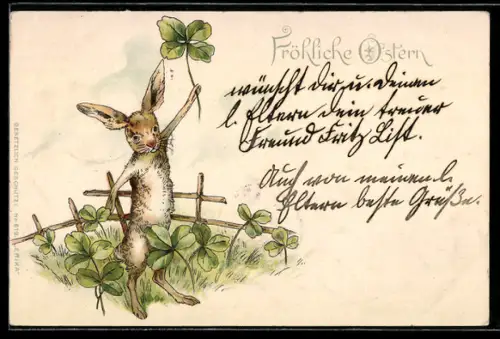 Fröhliche Ostern
wünscht dir u. deinen
l. Eltern dein treuer
Freund Fritz List.
Auch von meinen l.
Eltern beste Grüße.
GESETZLICH GESCHÜTZT